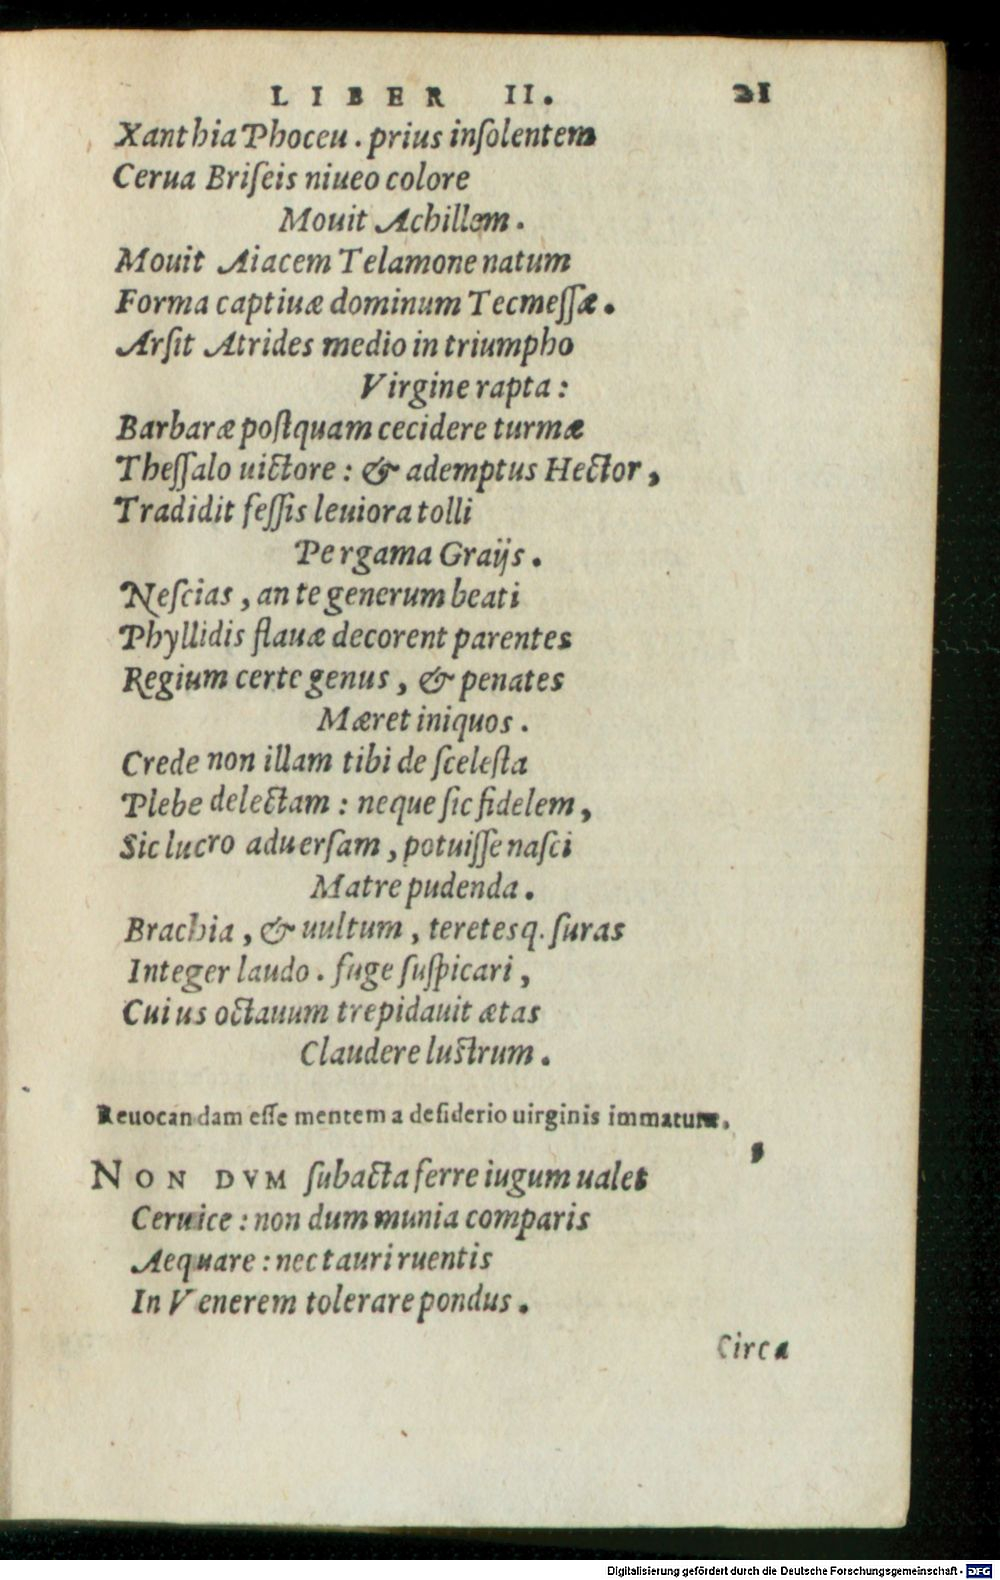 LIBER II. 21
Xanthia Phoceu. prius inſolentem
Cerua Briſeis niueo colore
Mouit Achillem.
Mouit Aiacem Telamone natum
Forma captiuæ dominum Tecmeſſæ.
Arſit Atrides medio in triumpho
Virgine rapta:
Barbaræ poſtquam cecidere turmæ
Theſſalo uictore: & ademptus Hector,
Tradidit feſſis leuiora tolli
Pergama Graijs.
Neſcias, an te generum beati
Phyllidis flauæ decorent parentes
Regium certe genus, & penates
Mæret iniquos.
Crede non illam tibi de ſceleſta
Plebe delectam: neque ſic fidelem,
Sic lucro aduerſam, potuiſſe naſci
Matre pudenda.
Brachia, & uultum, teretesq. ſuras
Integer laudo. fuge ſuſpicari,
Cuius octauum trepidauit ætas
Claudere luſtrum.
Reuocandam eſſe mentem a deſiderio uirginis immaturæ.
NON DVM ſubacta ferre iugum ualet
Ceruice: non dum munia comparis
Aequare: nec tauri ruentis
In Venerem tolerare pondus.
Circa
Digitalisierung gefördert durch die Deutsche Forschungsgemeinschaft - DFG